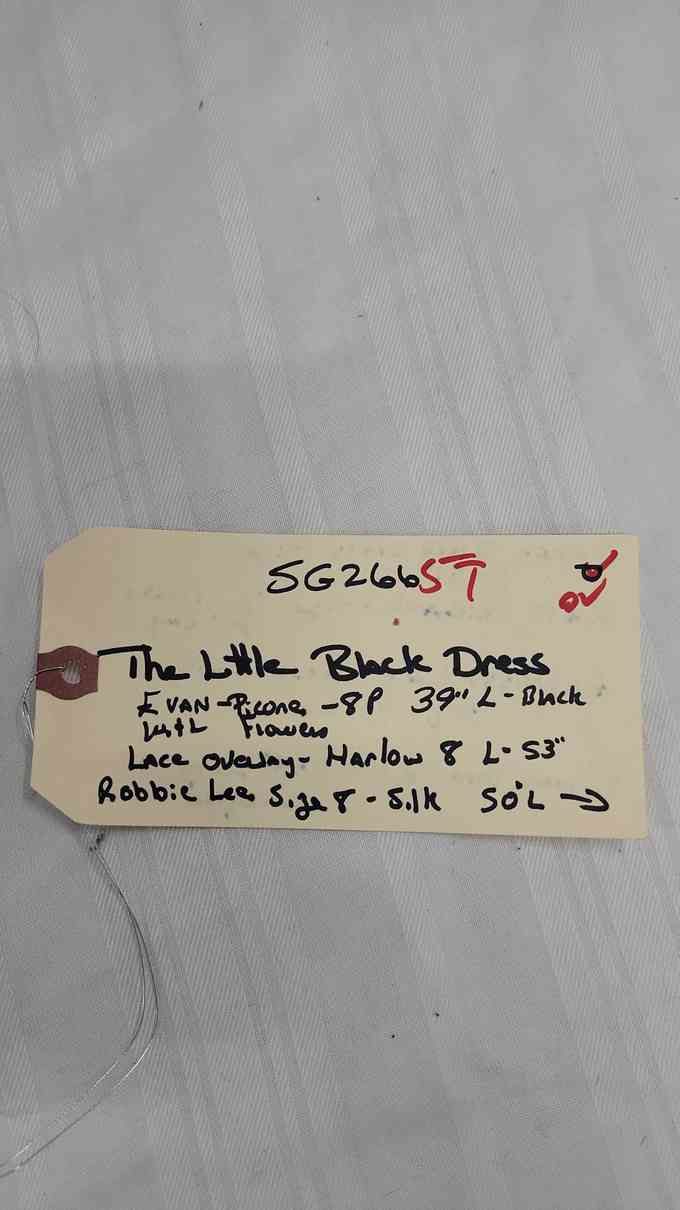 SG266ST
The Little Black Dress
EVAN-Picone, -8P 39" L - Black
with Flowers
Lace overlay- Harlow 8 L- 53"
Robbie Lee, Size 8 - Silk 50" L →